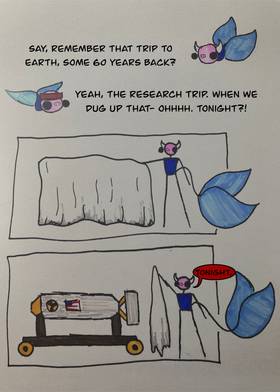 SAY, REMEMBER THAT TRIP TO
EARTH, SOME 60 YEARS BACK?
YEAH, THE RESEARCH TRIP. WHEN WE
DUG UP THAT- OHHHH. TONIGHT?!
TONIGHT.